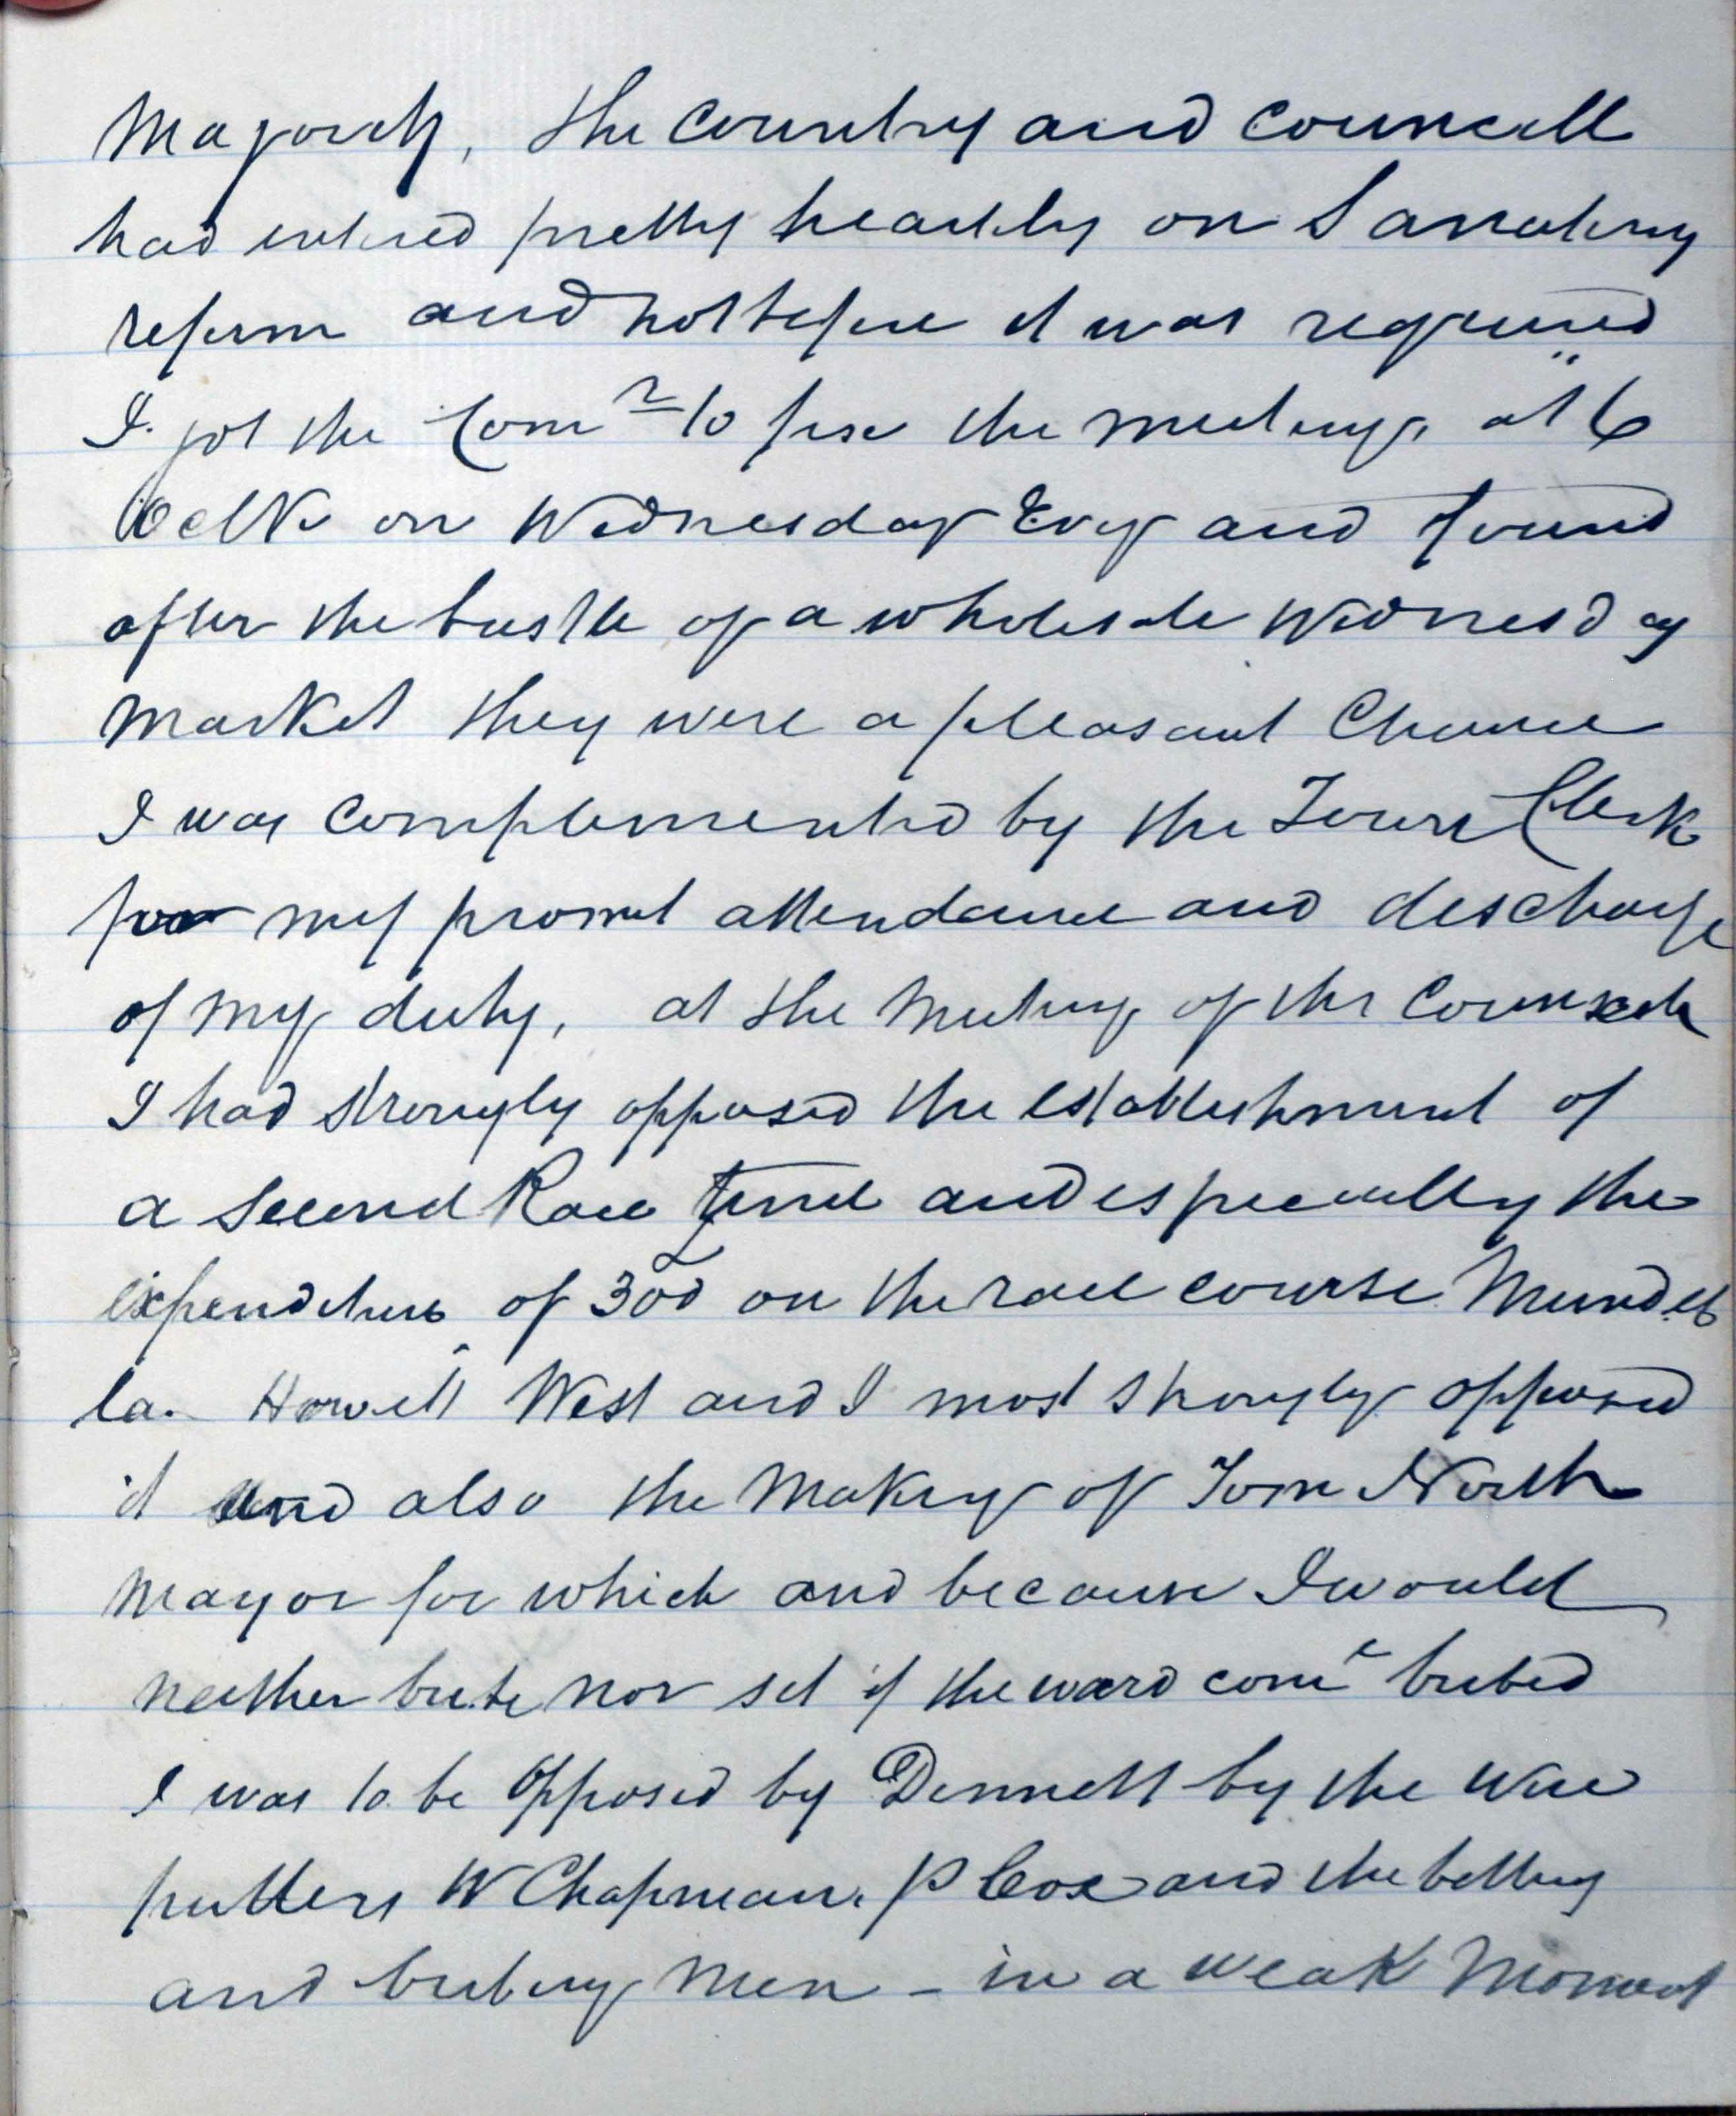 Majority, the Country and councell
had entered pretty heartily on Sanatory
reform and not before it was required
I got the Com to fix the meetings at 6
oclk on Wednesday Evg and found
after the bustle of a wholesale Wednesday
Market they were a pleasant Change
I was complemented by the Town Clerk
for my promt attendance and discharge
of my duty, at the Meeting of the Council
I had strongly opposed the establishment of
a Second Race fund and especially the
expenditure of £300 on the race course Mundel
la. Howitt West and I most strongly opposed
it and also the Making of Tom North
Mayor for which and because I would
neither bribe nor sit if the ward come bribed
I was to be Opposed by Dennett by the wire
pullers W Chapman, P Cox and the betting
and bribing Men - in a weak Moment